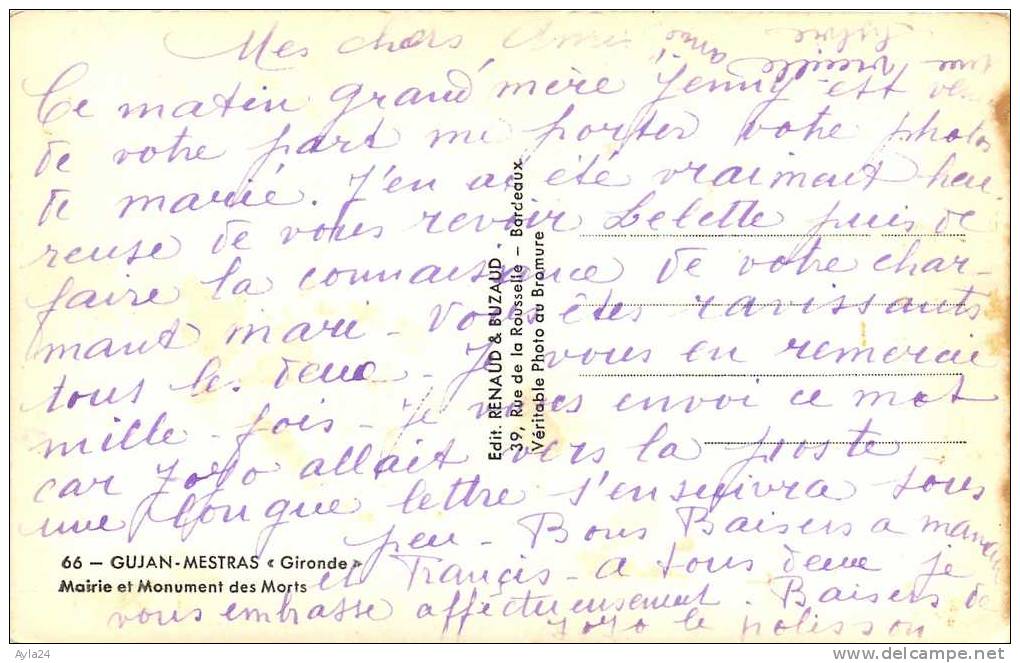 Mes chers Amis
Ce matin grand'mère Jenny est
de votre part me porter votre photos
de marié. J'en ai été vraiment heu
reuse de vous revoir Belette puis de
faire la connaissance de votre char-
mant mari - Vous êtes ravissants
tous les deux - Je vous en remercie
mille fois - Je vous envoi ce mot
car Jojo allait vers la poste -
une longue lettre s'ensuivra sous
peu - Bons Baisers a maman
et Françis - a tous deux je
vous embrasse affectueusement. Baisers de
Jojo le polisson
une vieille amie
Sylvie
Edit. RENAUD & BUZAUD
39, Rue de la Rousselle - Bordeaux
Véritable Photo au Bromure
66 - GUJAN-MESTRAS « Gironde »
Mairie et Monument des Morts
Ayla24
www.delcampe.net